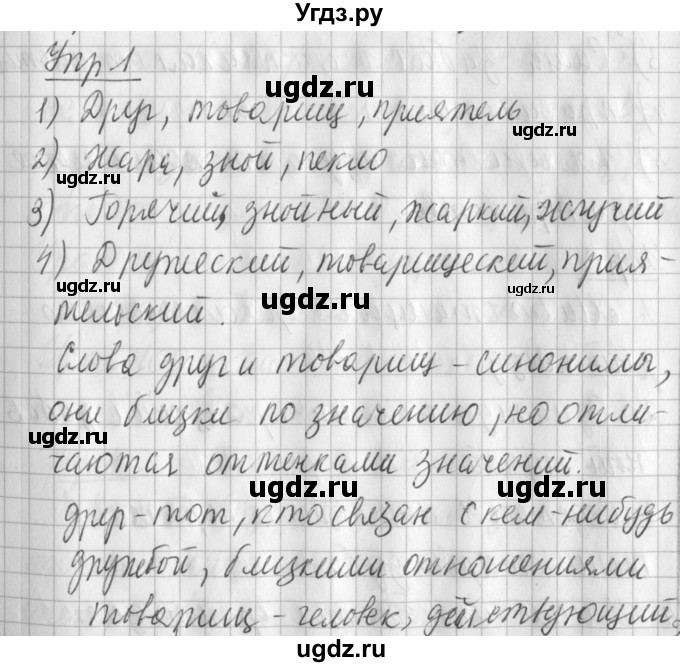 Угдз.ру
Упр 1
1) Друг, товарищ, приятель
2) Жара, зной, пекло
3) Горячий, знойный, жаркий, жгучий
4) Дружеский, товарищеский, прия-
тельский.
Слова друг и товарищ - синонимы,
они близки по значению, но отли-
чаются оттенками значений.
друг - тот, кто связан с кем-нибудь
дружбой, близкими отношениями
товарищ - человек, действующий,
ugdz.ru
ugdz.ru
ugdz.ru
ugdz.ru
ugdz.ru
ugdz.ru
ugdz.ru
ugdz.ru
ugdz.ru
ugdz.ru
ugdz.ru
ugdz.ru
ugdz.ru
ugdz.ru